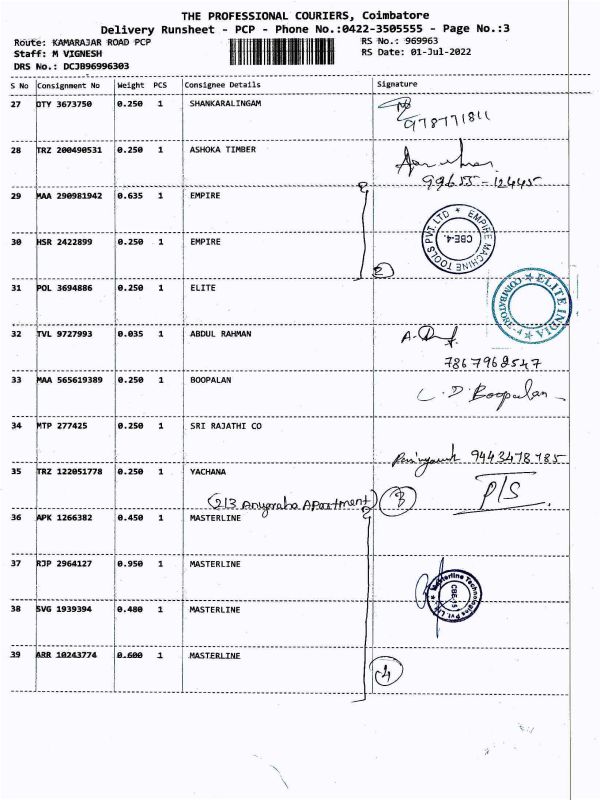 THE PROFESSIONAL COURIERS, Coimbatore
Delivery Runsheet - PCP - Phone No.:0422-3505555 - Page No.:3
Route: KAMARAJAR ROAD PCP RS No.: 969963
Staff: M VIGNESH RS Date: 01-Jul-2022
DRS No.: DCJB96996303
S No Consignment No Weight PCS Consignee Details Signature
27 OTY 3673750 0.250 1 SHANKARALINGAM
978771811
28 TRZ 200490531 0.250 1 ASHOKA TIMBER
99655-12445
29 MAA 290981942 0.635 1 EMPIRE
EMPIRE MACHINE TOOLS PVT. LTD * CBE-4.
30 HSR 2422899 0.250 1 EMPIRE
2
31 POL 3694886 0.250 1 ELITE
* ELITE INDIA * COIMBATORE-4
32 TVL 9727993 0.035 1 ABDUL RAHMAN
7867968547
33 MAA 565619389 0.250 1 BOOPALAN
C.D. Boopalan
34 MTP 277425 0.250 1 SRI RAJATHI CO
9443478785
35 TRZ 122051778 0.250 1 YACHANA
P/S
(213 Anugraha APartment) 3
36 APK 1266382 0.450 1 MASTERLINE
37 RJP 2964127 0.950 1 MASTERLINE
Masterline Technologies Pvt Ltd * CBE-15
38 SVG 1939394 0.480 1 MASTERLINE
39 ARR 10243774 0.600 1 MASTERLINE
4